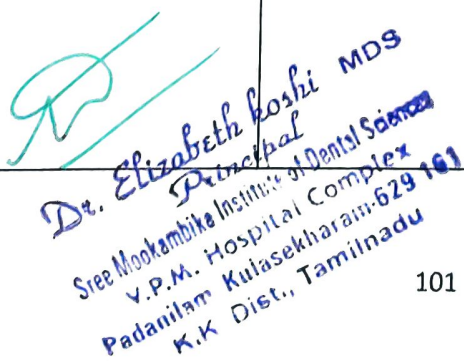 Dr. Elizabeth koshi MDS
Principal
Sree Mookambika Institute of Dental Sciences
V.P.M. Hospital Complex
Padanilam Kulasekharam-629 161
K.K Dist., Tamilnadu
101